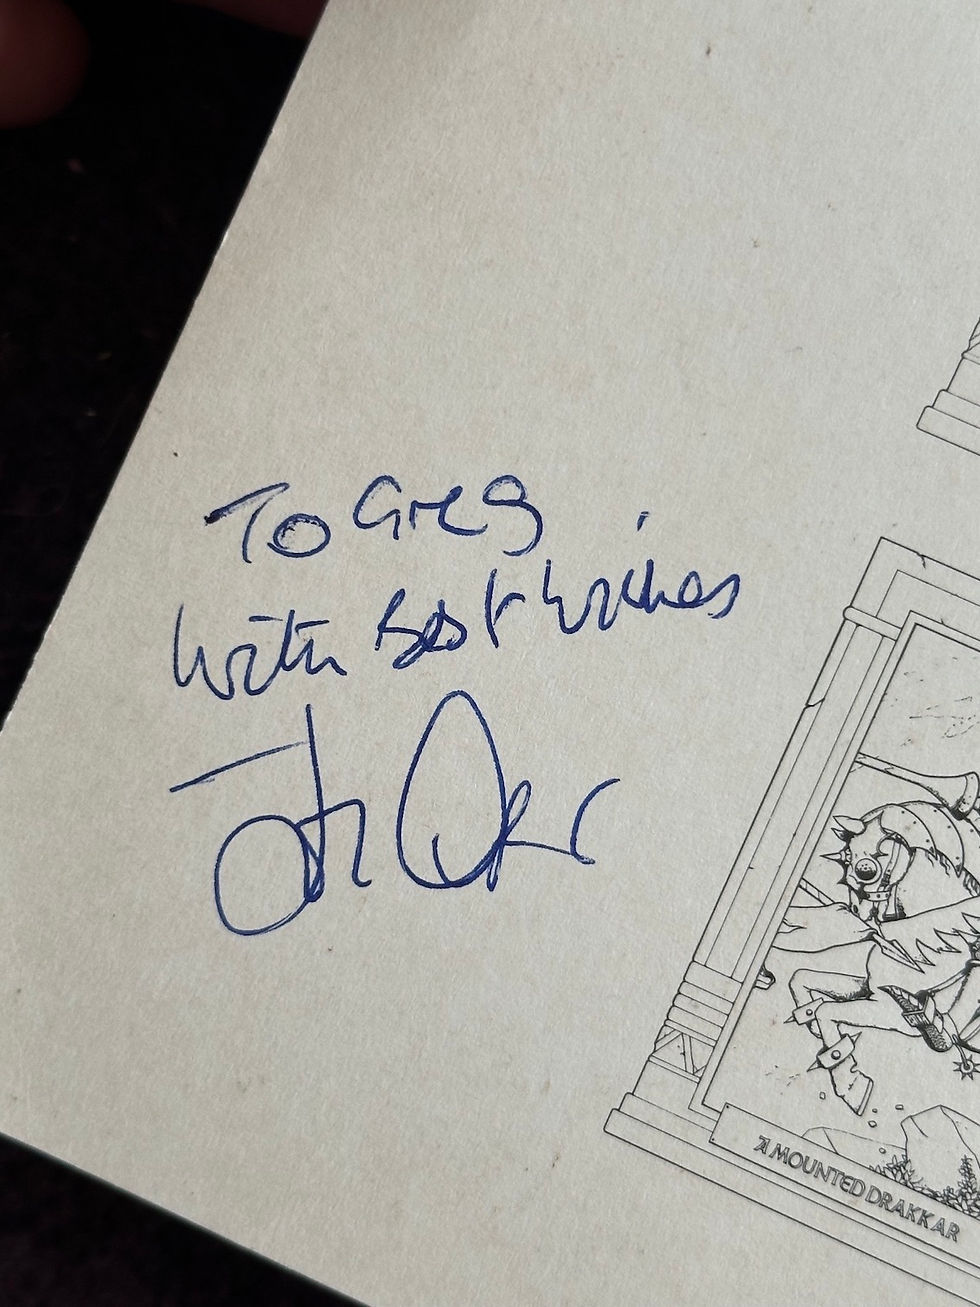 To Greg
With Best Wishes
A MOUNTED DRAKKAR